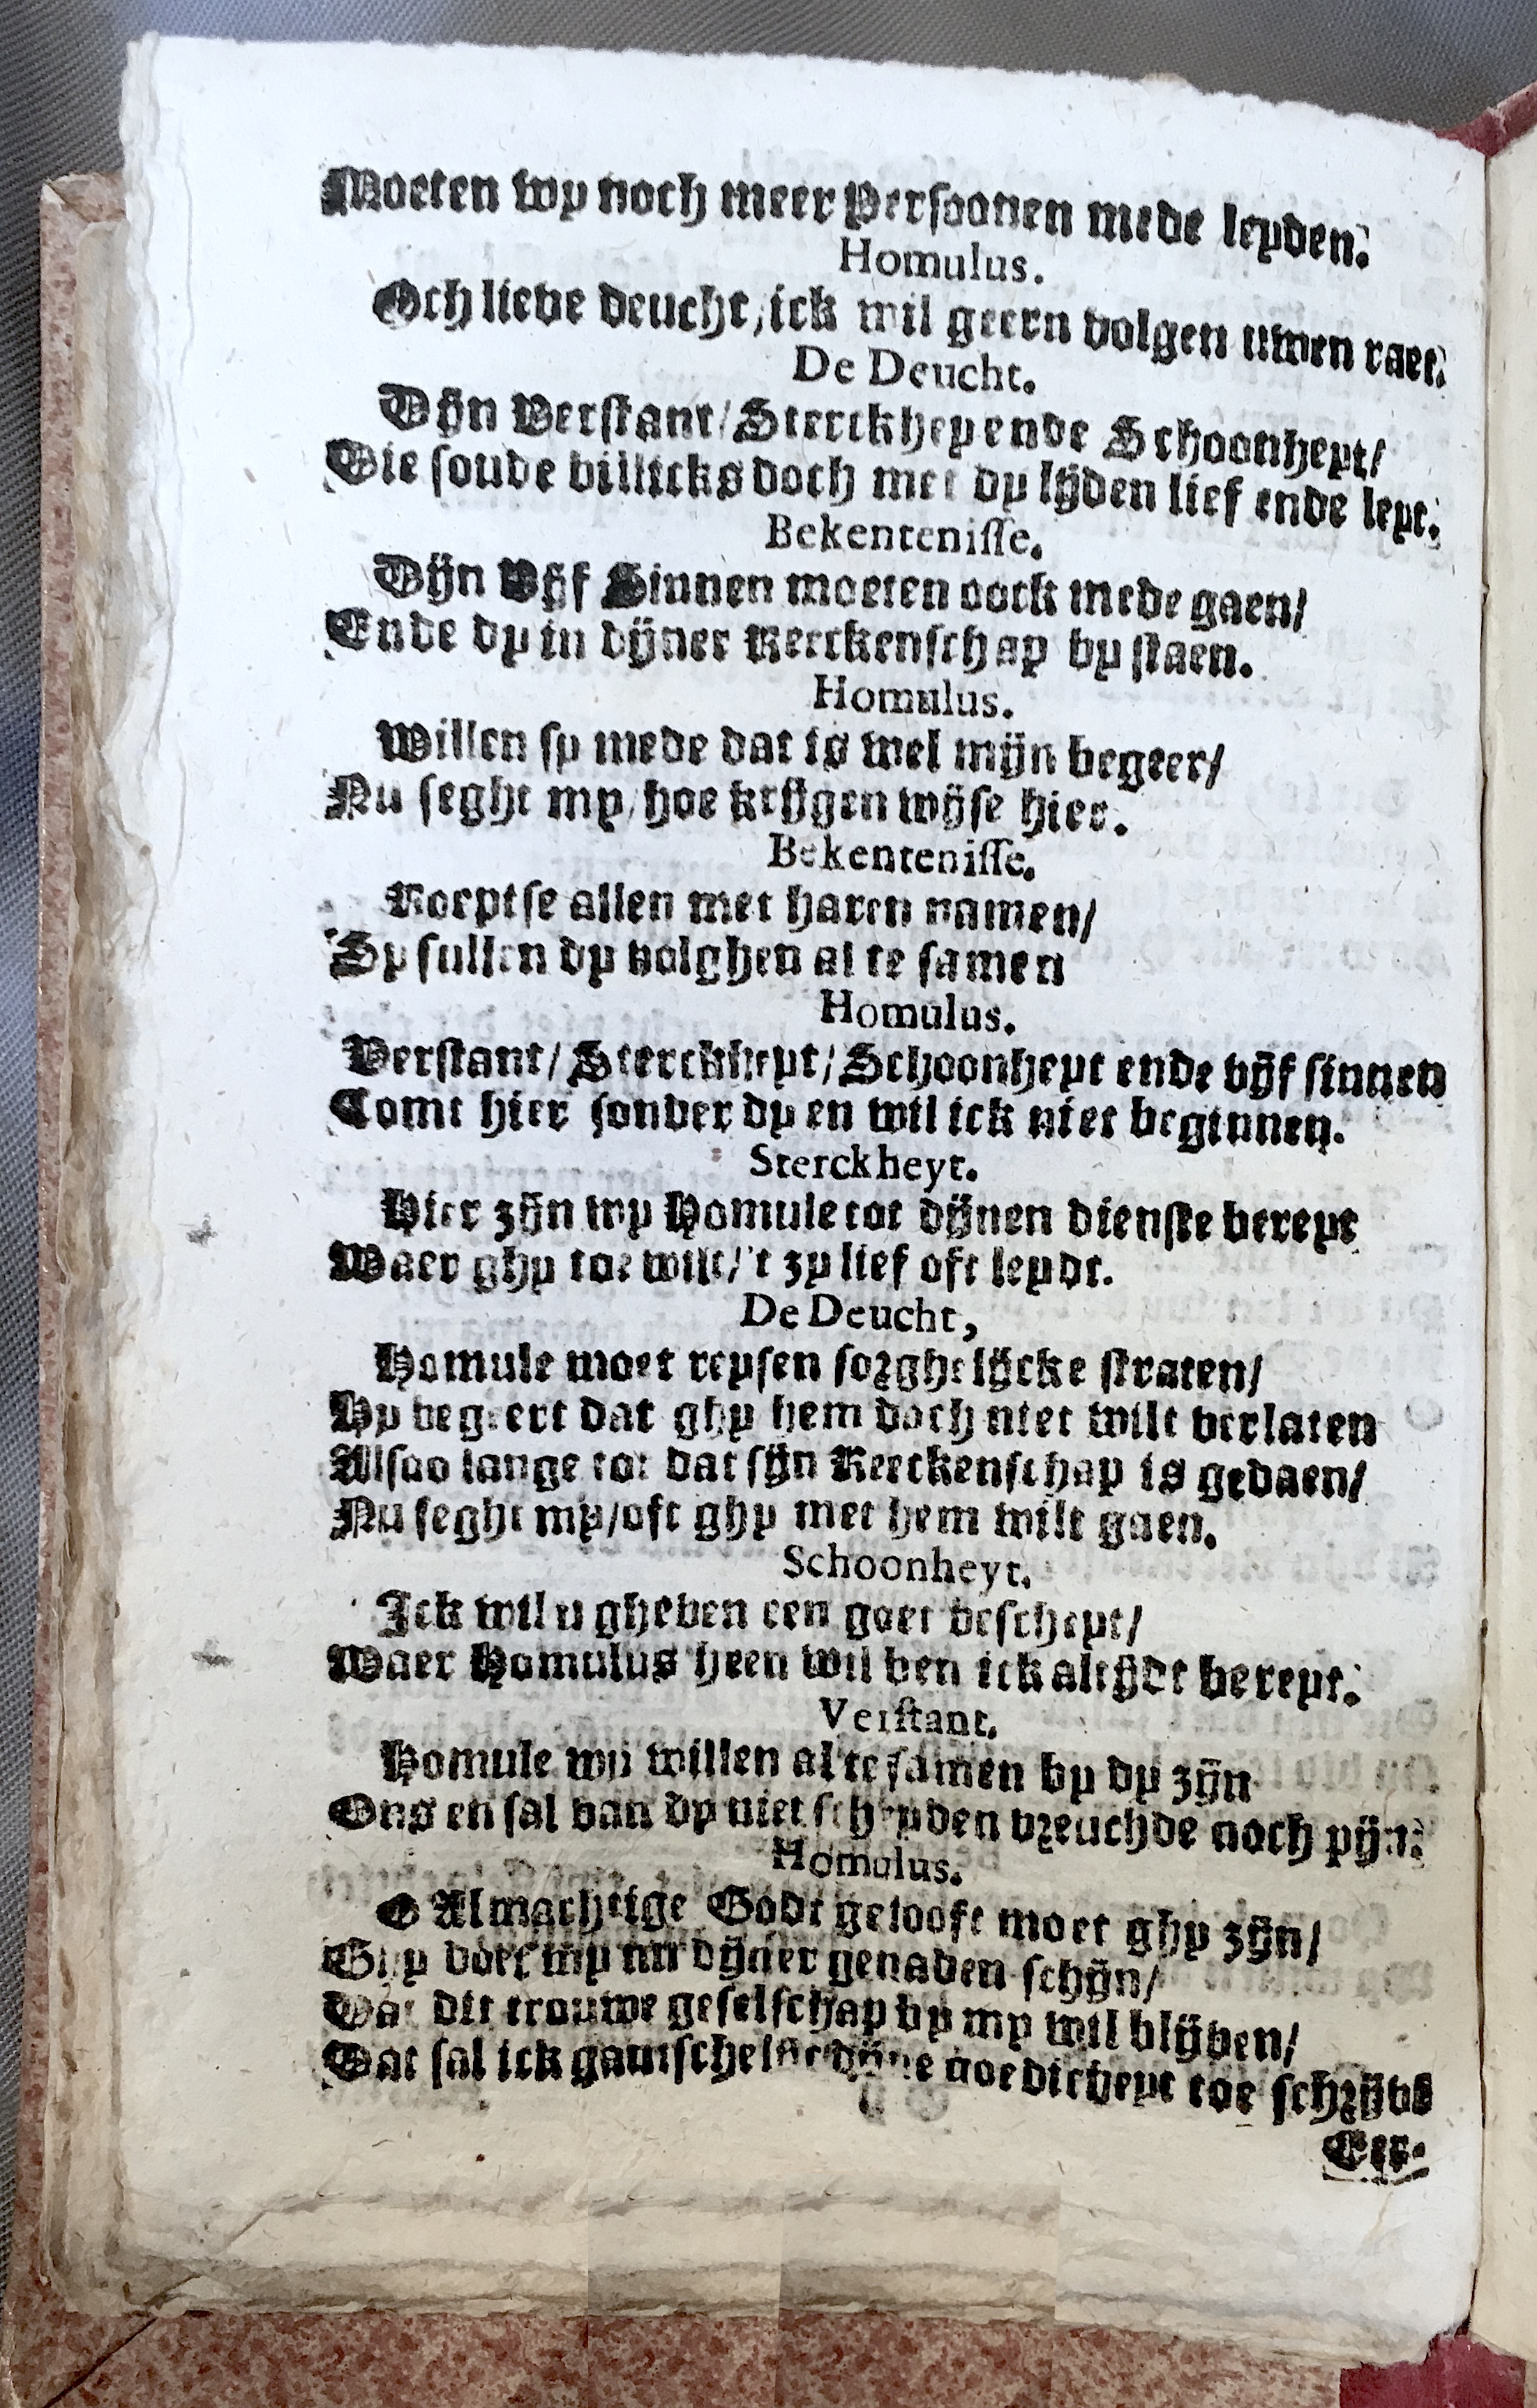 Moeten wy noch meer Persoonen mede leyden.
Homulus.
Och lieve deucht, ick wil geern volgen uwen raet.
De Deucht.
Dijn Verstant/ Sterckhey ende Schoonheyt/
Die soude billicks doch met dy lijden lief ende leyt.
Bekentenisse.
Dijn Vijf Sinnen moeten oock mede gaen/
Ende dy in dijner Reeckenschap by staen.
Homulus.
Willen sy mede dat is wel mijn begeer/
Nu seght my/ hoe krijgen wijse hier.
Bekentenisse.
Roeptse allen met haren namen/
Sy sullen dy volghen al te samen
Homulus.
Verstant/ Sterckheyt/ Schoonheyt ende vijf sinnen
Comt hier sonder dy en wil ick niet beginnen.
Sterckheyt.
Hier zijn wy Homule tot dijnen dienste bereyt
Waer ghy toe wilt/ 't zy lief oft leydt.
De Deucht,
Homule moet reysen sorghelijcke straten/
Hy begeert dat ghy hem doch niet wilt verlaten
Alsoo lange tot dat sijn Reeckenschap is gedaen/
Nu seght my/ oft ghy met hem wilt gaen.
Schoonheyt.
Ick wil u gheven een goet bescheyt/
Waer Homulus heen wil ben ick altijdt bereyt.
Verstant.
Homule wy willen al te samen by dy zijn
Ons en sal van dy niet scheyden vreuchde noch pijn.
Homulus.
O Almachtige Godt gelooft moet ghy zijn/
Ghy doet my nu dijner genaden schijn/
Dat dit trouwe geselschap by my wil blijven/
Dat sal ick gantschelijc dijne goedicheyt toe schrijvē
Eer-